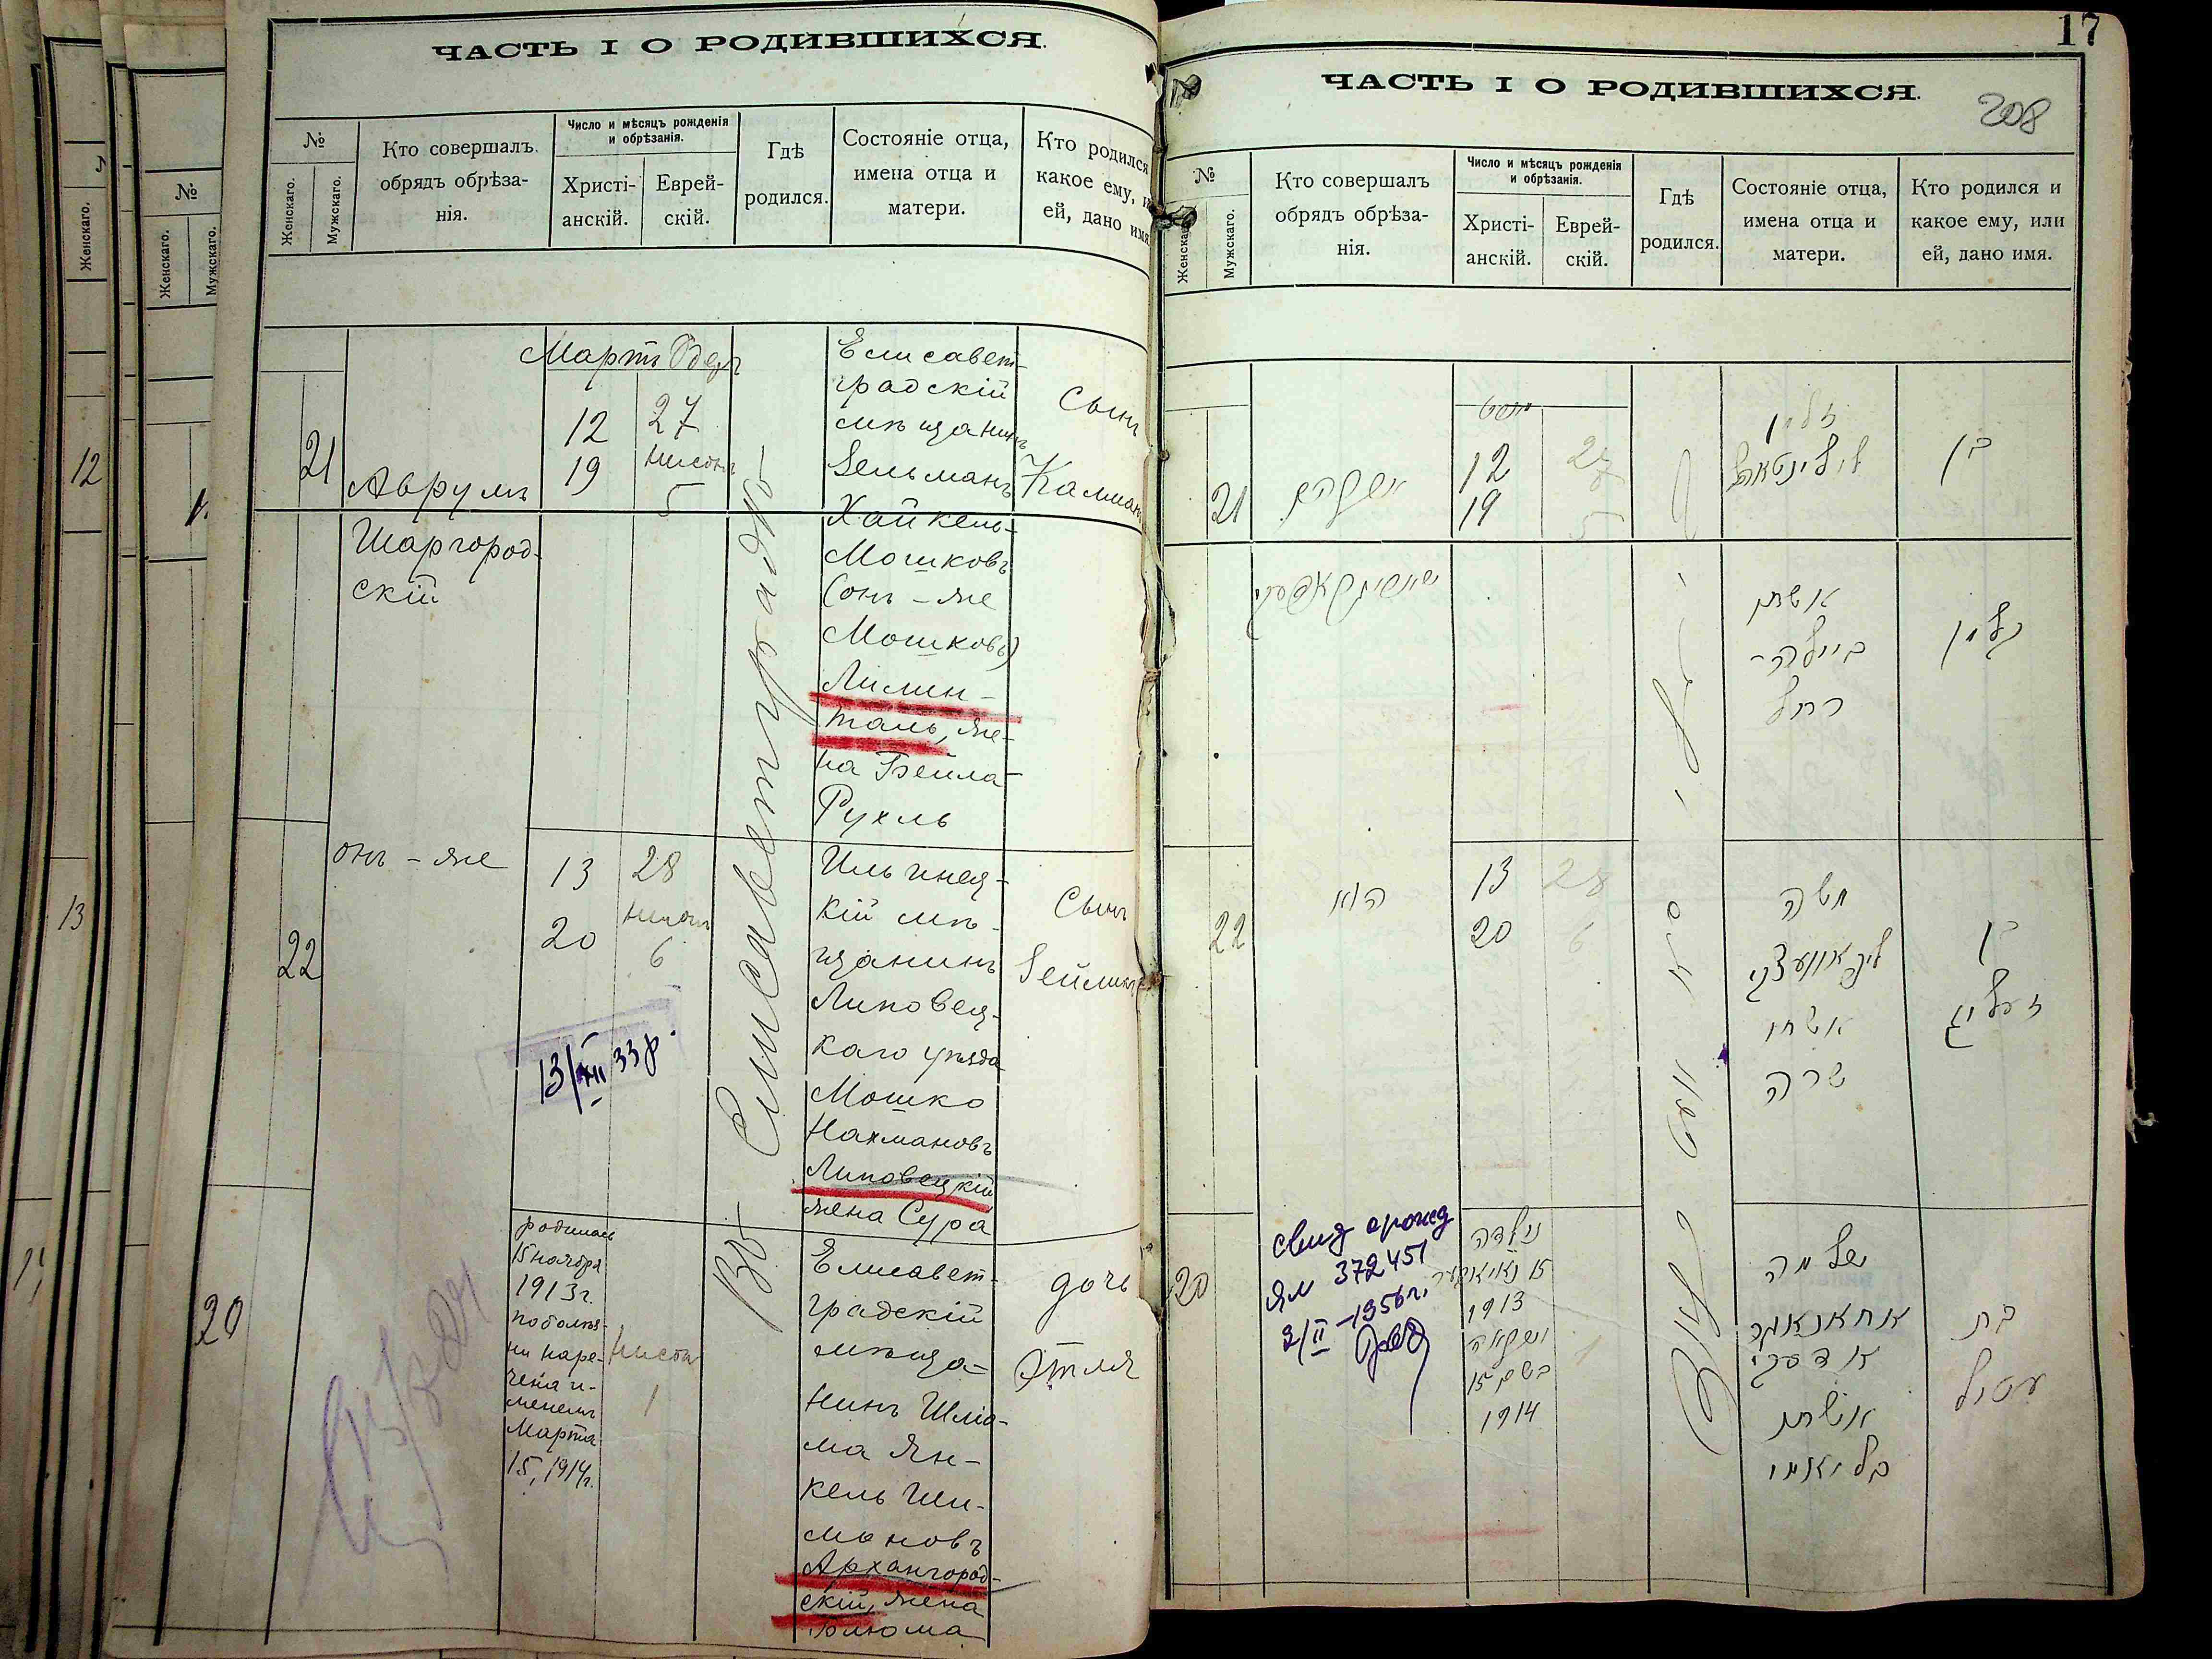 ЧАСТЬ I О РОДИВШИХСЯ.
№
Женскаго.
Мужскаго.
Кто совершалъ
обрядъ обрѣза-
нія.
Число и мѣсяцъ рожденія
и обрѣзанія.
Христі-
анскій.
Еврей-
скій.
Гдѣ
родился.
Состояніе отца,
имена отца и
матери.
Кто родился
какое ему, и
ей, дано имя
21
Аврумъ
Шаргород-
скій
Мартъ Одеръ
12
19
27
Нисонъ
5
Въ Елисаветградѣ
Елисавет-
градскій
мѣщанинъ
Зельманъ
Хайкель-
Мошковъ
(онъ-же
Мошковъ)
Лилин-
таль, же-
на Бейла-
Рухль
Сынъ
Калман
22
онъ-же
13
20
28
Нисонъ
6
13/XII 33 р.
Ильинец-
кій мѣ-
щанинъ
Липовец-
каго уѣзда
Мошко
Нахмановъ
Липовецкій
жена Сура
Сынъ
Зейликъ
20
родилась
15 ноября
1913 г.
по болѣз-
ни наре-
чена и-
менемъ
Марта
15, 1914 г.
Нисонъ
1
Елисавет-
градскій
мѣща-
нинъ Шлio-
ма Ян-
кель Ши-
мановъ
Архангород-
скій, жена
Блюма
дочь
Этля
12
13
17
ЧАСТЬ I О РОДИВШИХСЯ.
208
№
Женскаго
Мужскаго.
Кто совершалъ
обрядъ обрѣза-
нія.
Число и мѣсяцъ рожденія
и обрѣзанія.
Христі-
анскій.
Еврей-
скій.
Гдѣ
родился.
Состояніе отца,
имена отца и
матери.
Кто родился и
какое ему, или
ей, дано имя.
21
12
19
27
5
אשתו
ביילה-
רחל
בן
22
הוא
13
20
28
6
משה
אשתו
שרה
בן
זעליג
20
свид о рожд
ЯМ 372451
2/II-1956 г.
נולדה
15
1913
בשם 15
1914
1
שלמה
אשתו
בלומא
בת
עטיל